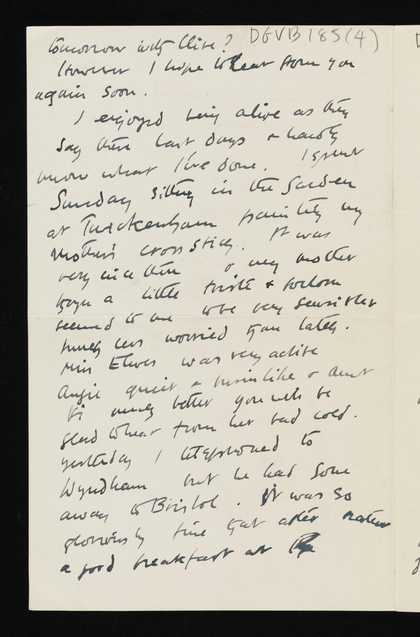 tomorrow with Clive? DGVB185(4)
However I hope to hear from you
again soon.
I enjoyed being alive as they
say these last days & hardly
know what I've done. I spent
Sunday sitting in the Garden
at Twickenham painting my
Mother's cross stich. It was
very nice there & my mother
tho a little triste & forlorn
seemed to me to be very sensible &
much less worried than lately.
Miss Elwes was very active
Angie quiet & businlike & aunt
Vi much better you will be
glad to hear from her bad cold.
yesterday I telephoned to
Wyndham but he had gone
away to Bristol. It was so
gloriously fine that after eating
a good breakfast at